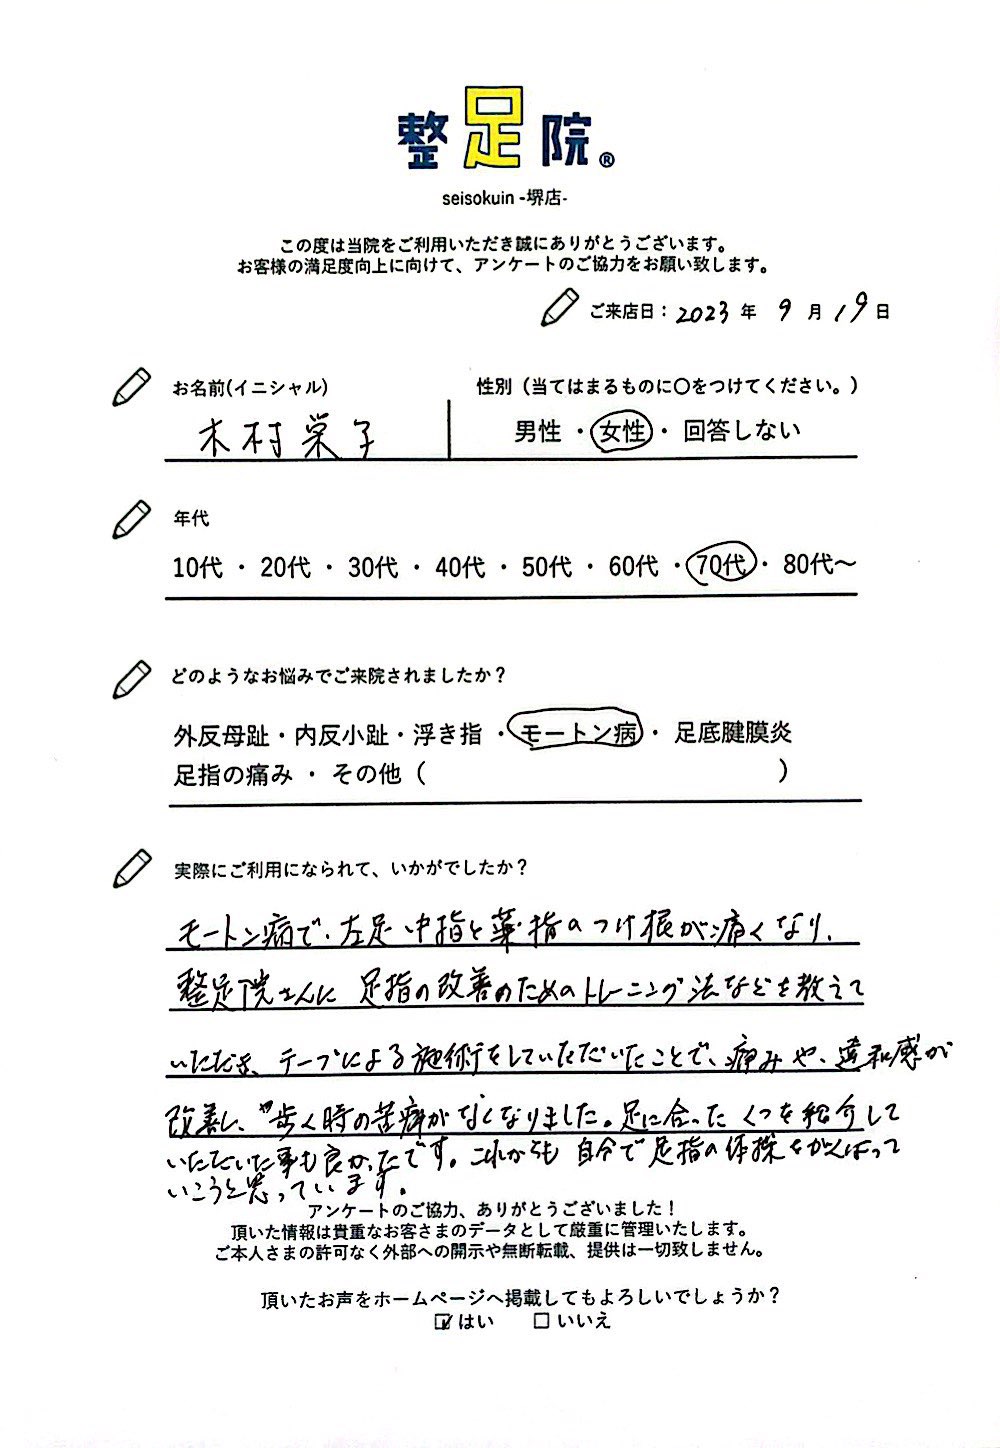 整足院®
seisokuin -堺店-
この度は当院をご利用いただき誠にありがとうございます。
お客様の満足度向上に向けて、アンケートのご協力をお願い致します。
ご来店日：2023年 9月19日
お名前(イニシャル) 性別（当てはまるものに〇をつけてください。）
木村栄子 男性 ・ 女性 ・ 回答しない
年代
10代 ・ 20代 ・ 30代 ・ 40代 ・ 50代 ・ 60代 ・ 70代 ・ 80代〜
どのようなお悩みでご来院されましたか？
外反母趾・内反小趾・浮き指 ・ モートン病 ・ 足底腱膜炎
足指の痛み ・ その他（ ）
実際にご利用になられて、いかがでしたか？
モートン病で、左足中指と薬指のつけ根が痛くなり、
整足院さんに足指の改善のためのトレーニング法などを教えて
いただき、テープによる施術をしていただいたことで、痛みや、違和感が
改善し、歩く時の苦痛がなくなりました。足に合ったくつを紹介して
いただいた事も良かったです。これからも自分で足指の体操をがんばって
いこうと思っています。
アンケートのご協力、ありがとうございました！
頂いた情報は貴重なお客さまのデータとして厳重に管理いたします。
ご本人さまの許可なく外部への開示や無断転載、提供は一切致しません。
頂いたお声をホームページへ掲載してもよろしいでしょうか？
☑はい □いいえ